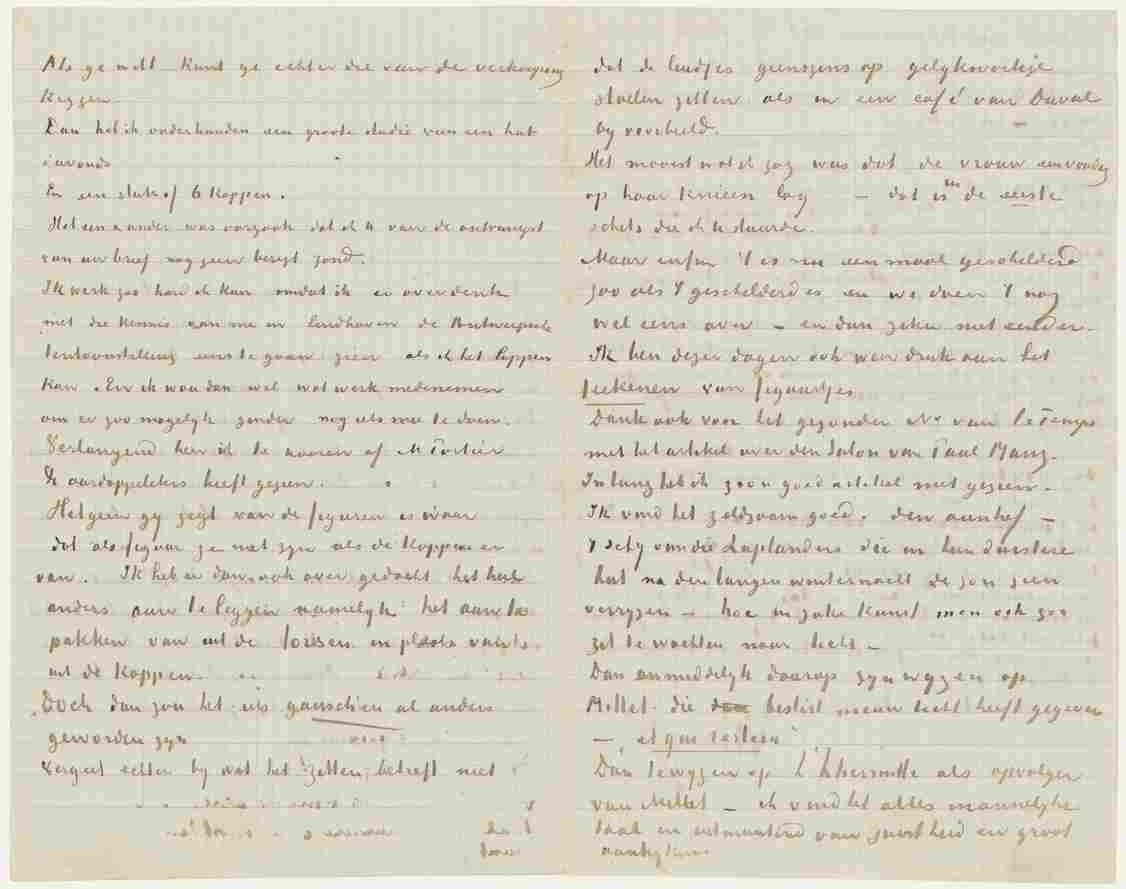 Als ge wilt kunt ge echter die van de verkooping
krygen.
Dan heb ik onderhanden een groote studie van een hut
's avonds
En een stuk of 6 koppen.
Het een & ander was oorzaak dat ik U van de ontvangst
van uw brief nog geen berigt zond.
Ik werk zoo hard ik kan omdat ik er over denk
met die kennis van me in Eindhoven de Antwerpsche
tentoonstelling eens te gaan zien als ik het lappen
kan. En ik wou dan wel wat werk medenemen
om er zoo mogelyk ginder nog iets mee te doen.
Verlangend ben ik te hooren of M Portier
de aardappeleters heeft gezien.
Hetgeen gy zegt van de figuren is waar
dat als figuur ze niet zyn als de koppen er
van. Ik heb er dan ook over gedacht het heel
anders aan te leggen namelyk het aan te
pakken van uit de torsen in plaats van
uit de koppen.
Doch dan zou het iets gansch en al anders
geworden zyn
Vergeet echter by wat het zitten betreft niet
dat de luidjes geenszins op gelyksoortige
stoelen zitten als in een café van Duval
by voorbeeld.
Het mooist wat ik zag was dat de vrouw eenvoudig
op haar knieen lag – dat is de eerste
schets die ik U stuurde.
Maar enfin 't is nu eenmaal geschilderd
zoo als 't geschilderd is en we doen 't nog
wel eens over – en dan zeker niet eender.
Ik ben dezer dagen ook weer druk aan het
teekenen van figuurtjes
Dank ook voor het gezonden No van le Temps
met het artikel over den Salon van Paul Manz.
In lang heb ik zoo'n goed artikel niet gezien.
Ik vond het zeldzaam goed. den aanhef –
't zeg van die Laplanders die in hun duistere
hut na den langen winternacht de zon zien
verryzen – hoe in zake kunst men ook zoo
zit te wachten naar licht –
Dan onmiddelyk daarop zyn wyzen op
Millet die beslist nieuw licht heeft gegeven
– 'et qui restera'
Dan te wyzen op L'hermitte als opvolger
van Millet – ik vond het alles mannelyke
taal en uitmuntend van juistheid en groot
aankyken